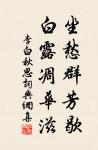 坐愁群芳歇
白露凋華滋
李白秋思詞典網集